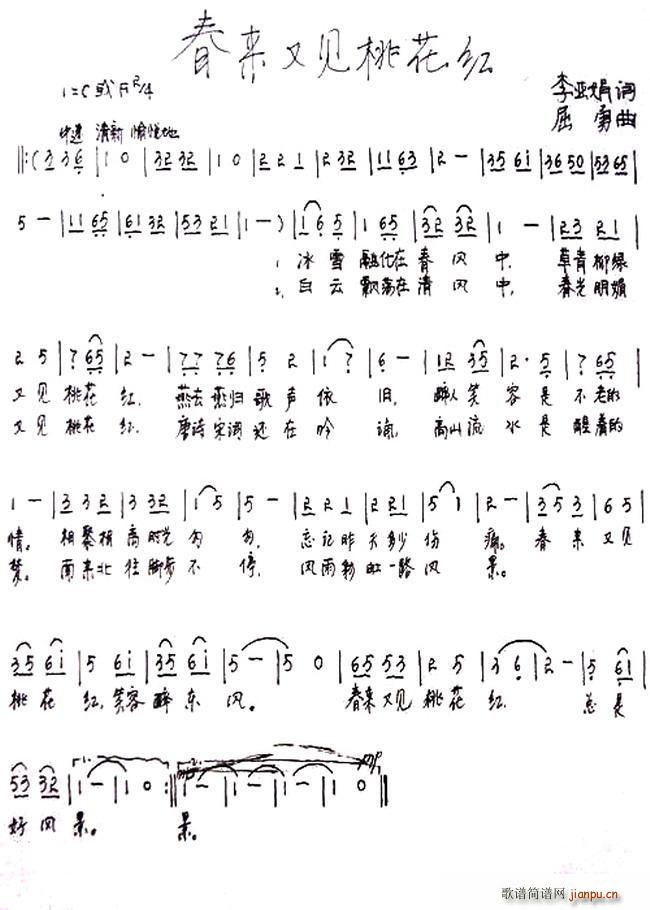 春来又见桃花红
1=C或F 2/4
李亚娟词
中速 清新 愉悦地
屈勇曲
‖:(3 3 6 | 1 0 | 32 32 | 1 0 | 2 2 1 | 2 32 | 11 63 | 2 - | 35 61 | 36 50 | 53 65 |
5 - | 11 65 | 61 32 | 53 21 | 1 - ) | 1 6 5 | 1 65 | 32 32 | 1 - | 23 21 |
1. 冰雪 融化在 春风 中, 草青柳绿
2. 白云 飘荡在 清风 中, 春光明媚
2 5 | 7 65 | 2 - | 77 76 | 5 2 | 1 7 | 6 - | 12 35 | 2· 5 | 7 65 |
又见 桃花 红. 燕去燕归 歌声 依 旧, 醉人笑 容是 不老的
又见 桃花 红. 唐诗宋词 还在 吟 诵, 高山流 水是 醒着的
1 - | 3 32 | 3 32 | 1 5 | 5 - | 2 2 1 | 2 21 | 5 1 | 2 - | 3 5 3 | 6 5 |
情。 相聚相离时光匆匆, 忘记昨天多少伤痛。 春来又见
梦。 南来北往脚步不停, 风雨彩虹一路风景。
35 61 | 5 61 | 35 61 | 5 - | 5 0 | 65 53 | 2 5 | 3 6 | 2 - | 5 61 |
桃花红, 笑容醉东风。 春来又见桃花红. 总是
53 32 | 1 - | 1 0 :‖ 1 - | 1 - | 1 - | 1 0 ‖
好风景。 景。
歌谱简谱网 jianpu.cn